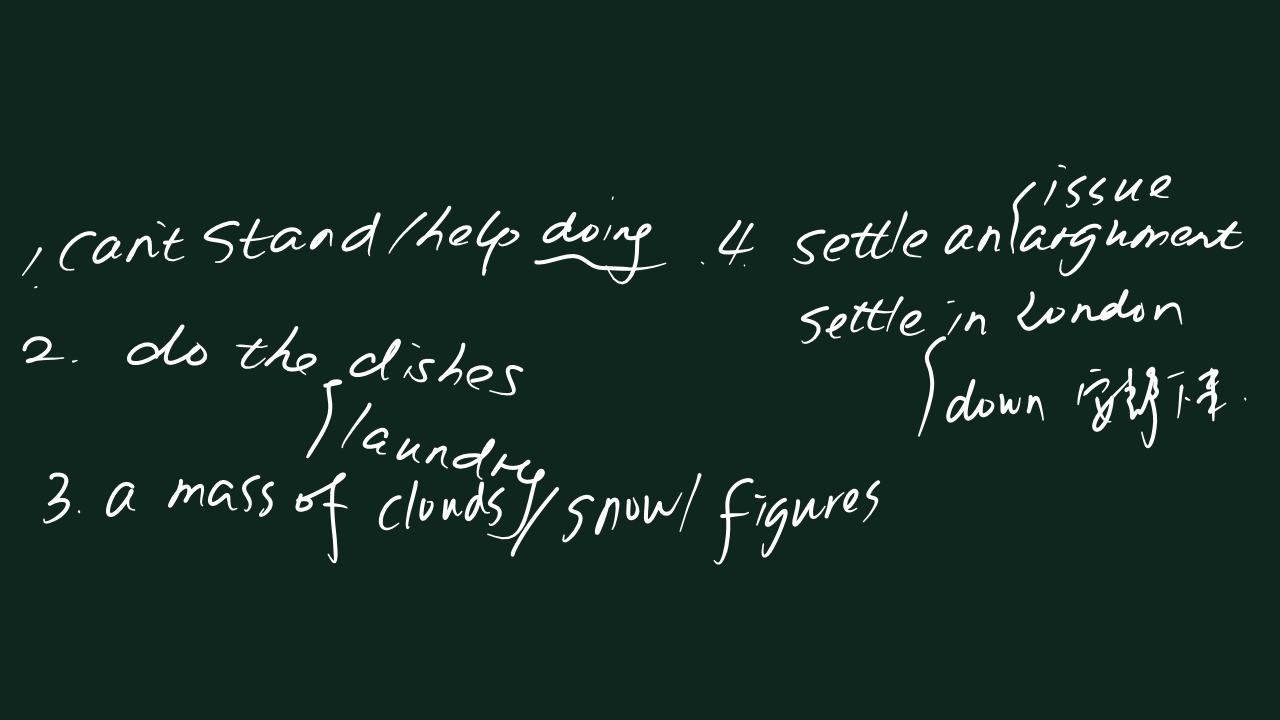 1. can't stand/help doing
2. do the dishes
laundry
3. a mass of clouds/snow/figures
4. settle an issue
argument
settle in London
down 安静下来.